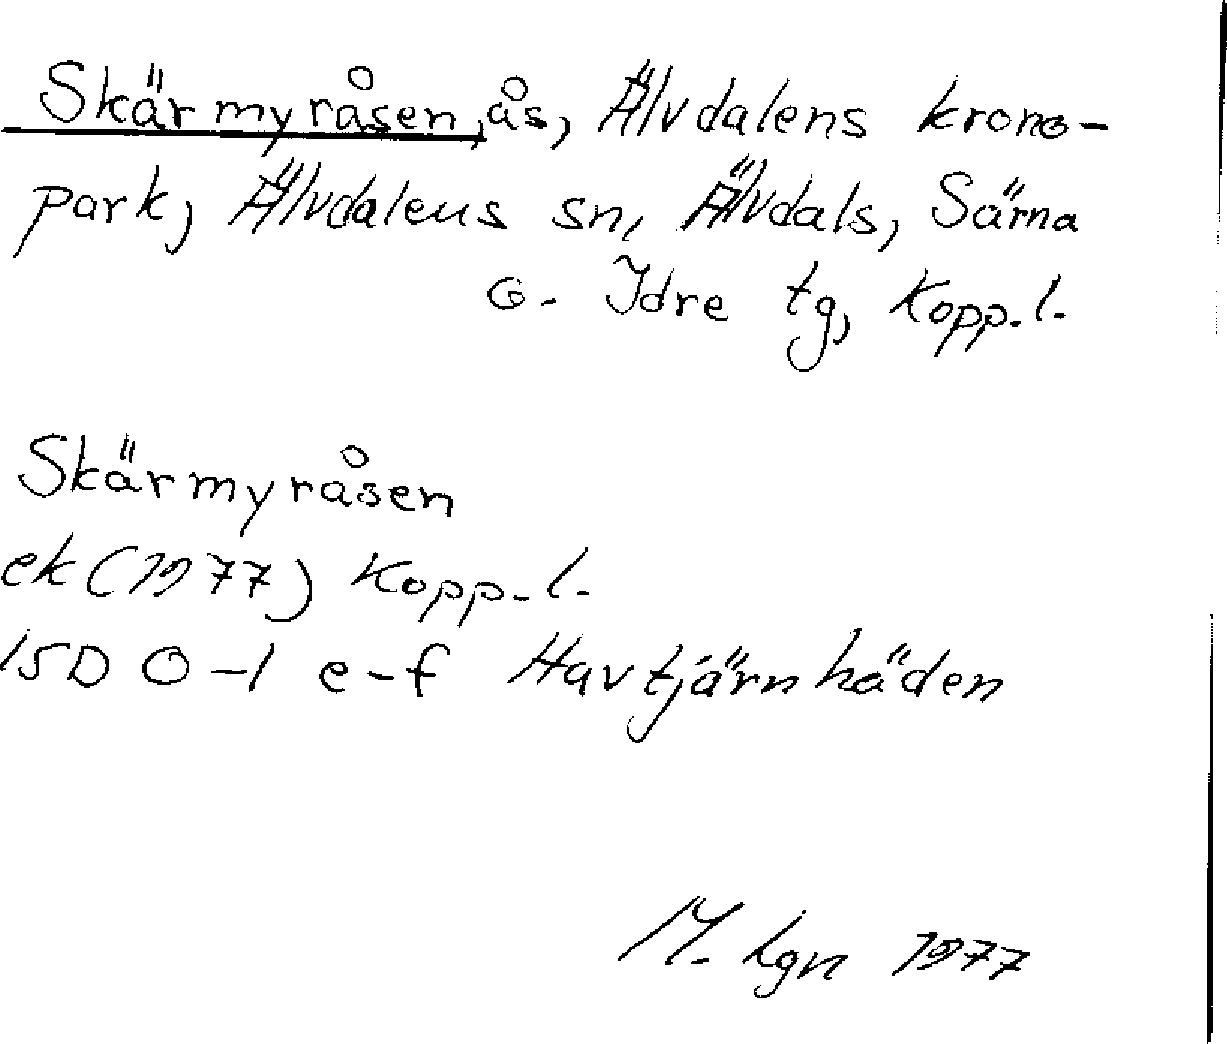 Skärmyråsen, ås, Älvdalens krono-
park, Älvdalens sn, Älvdals, Särna
o. Idre tg, Kopp. l.
Skärmyråsen
ek (1977) Kopp. l.
15D 0-1 e-f Havtjärnhäden
M. Lgn 1977